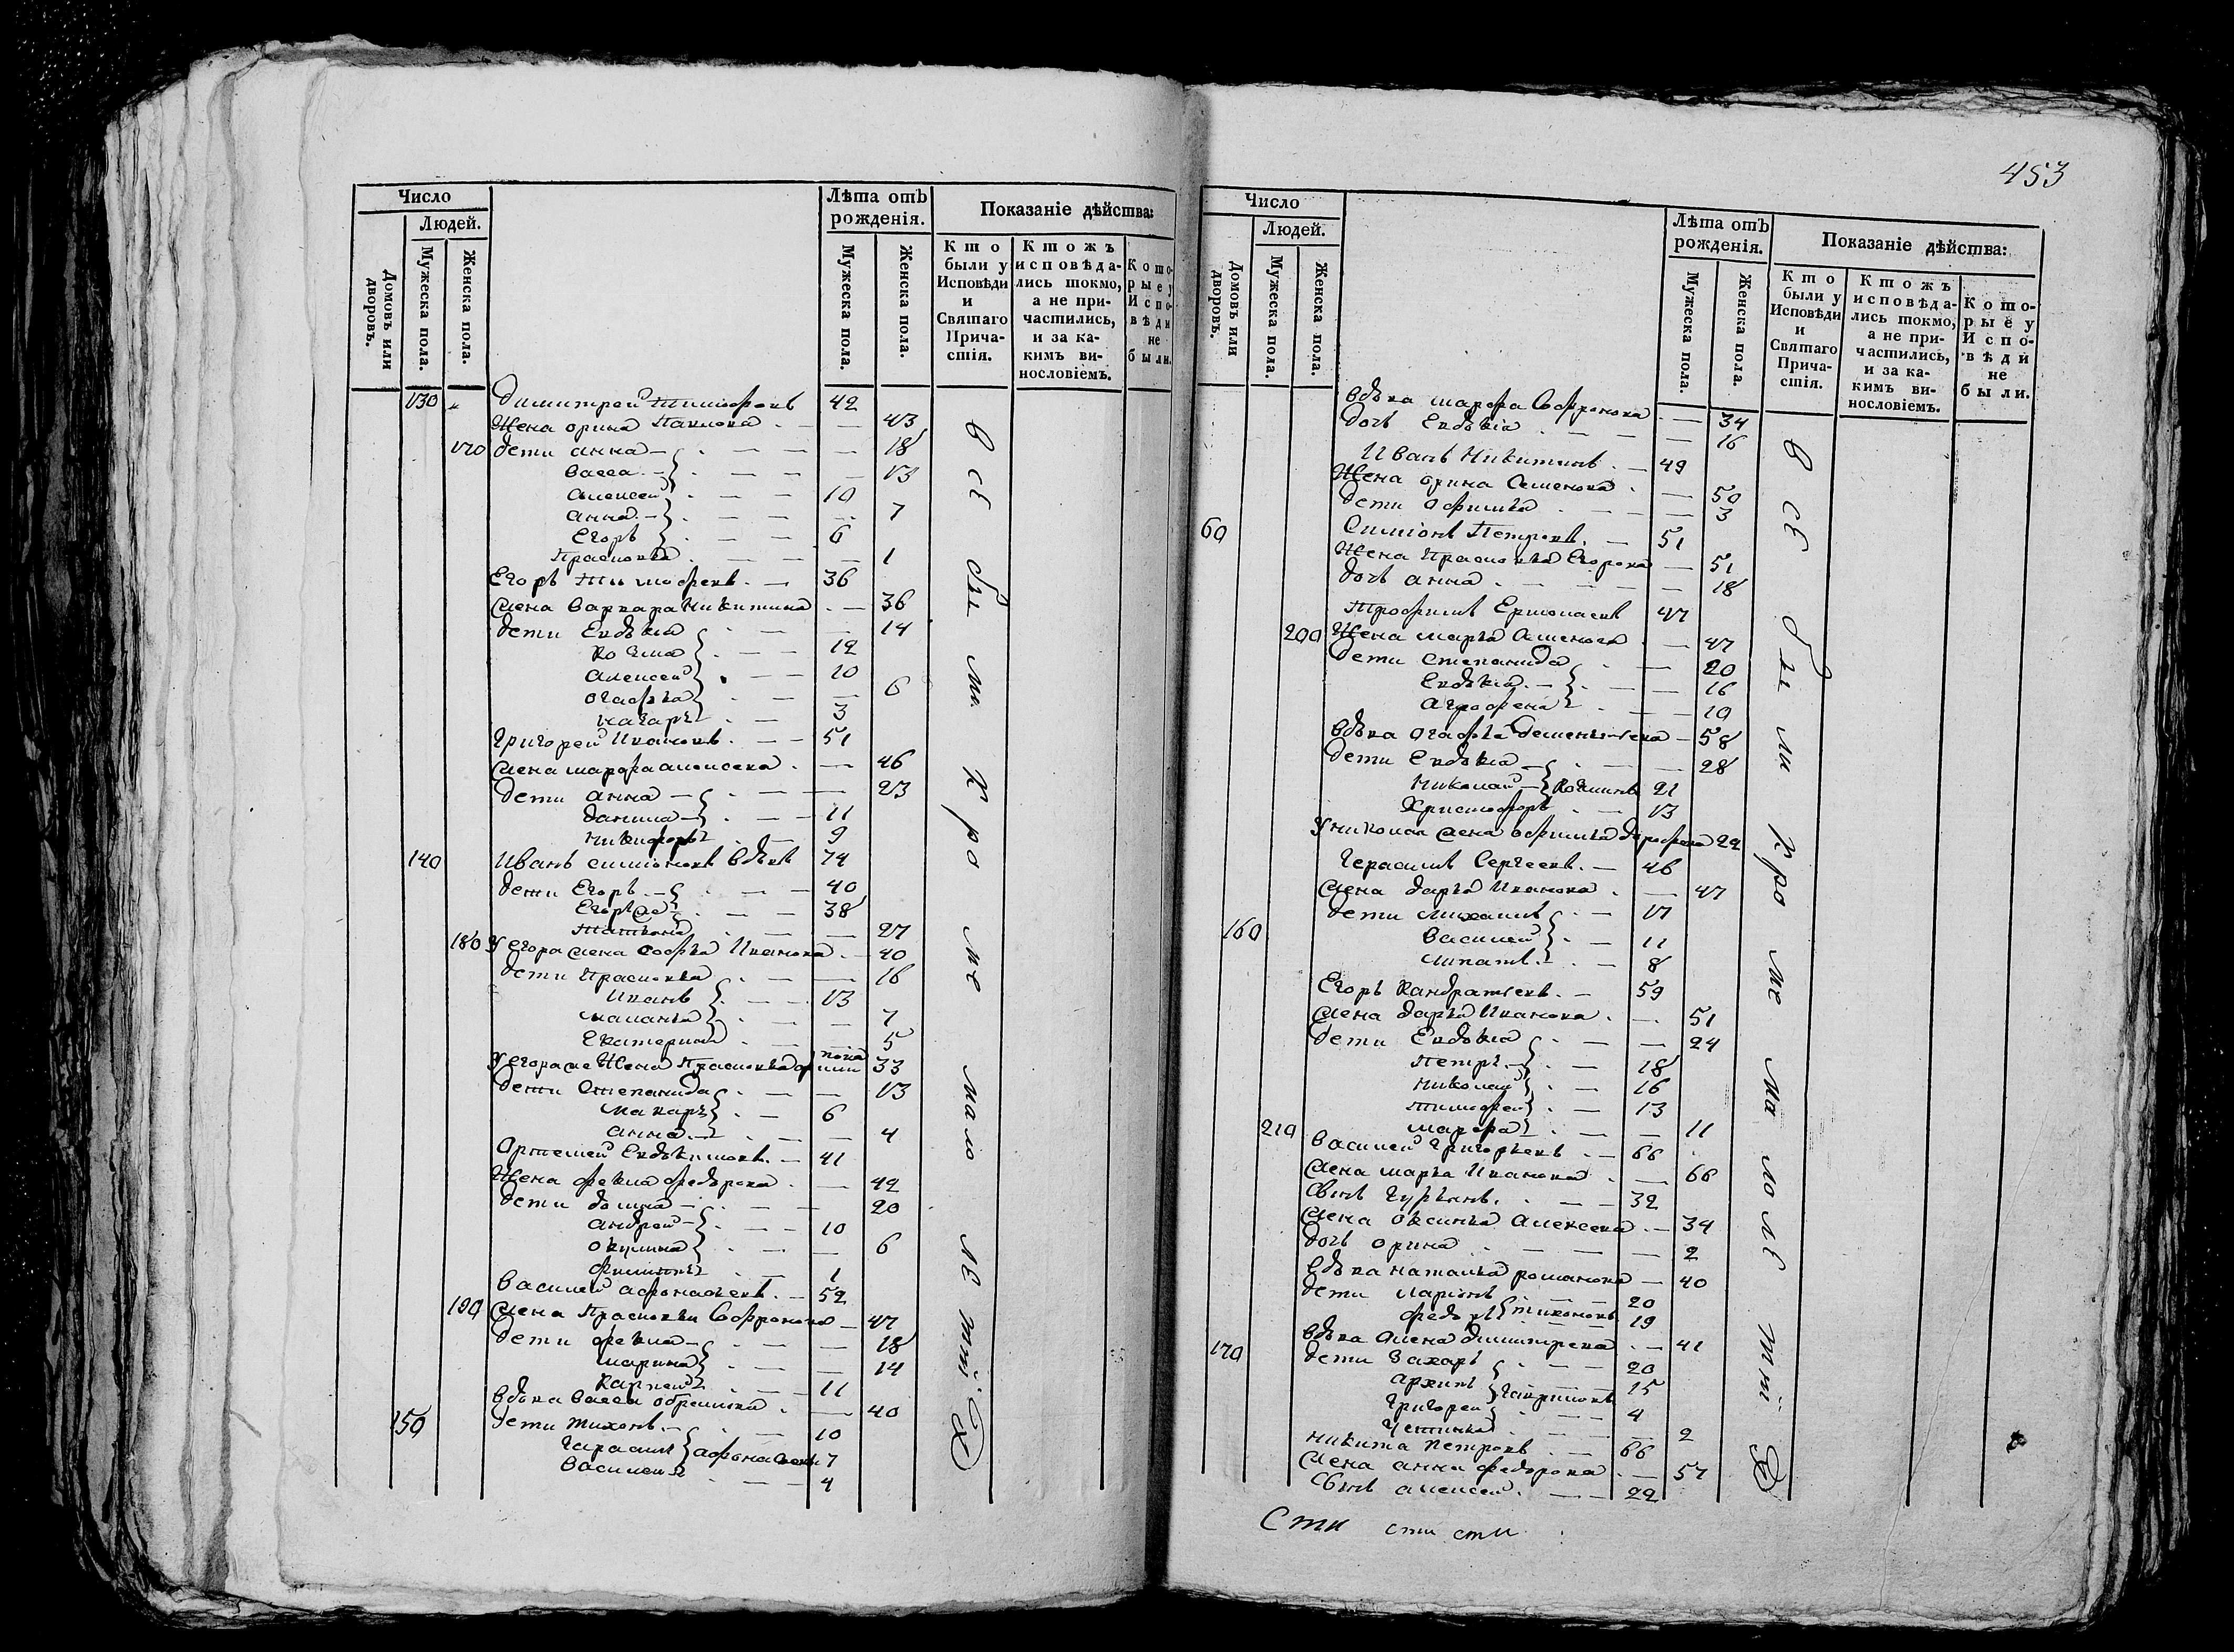 453
Число
Людей.
Домовъ или дворовъ.
Мужеска пола.
Женска пола.
Лѣта отъ рожденія.
Мужеска пола.
Женска пола.
Показаніе дѣйства:
Кто были у Исповѣди и Святаго Причастія.
Ктожъ исповѣдались токмо, а не причастились, и за какимъ винословіемъ.
Которые у Исповѣди не были.
130 Димитрей Тимофеевъ 42
Жена орина Павлова 43
170 дети анна 18
васса 13
алексей 10
анна 7
Егоръ 6
Прасковья 1
Егоръ Тимофеевъ 36
жена варвара Никитина 36
дети Евдокия 14
козма 12
алексей 10
огафья 6
назаръ 3
григорей Ивановъ 51
жена марфа алексеева 46
дети анна 23
данила 11
никифоръ 9
140 Иванъ симионовъ вдовъ 74
дети Егоръ 40
Егоръ же 38
Татиана 27
180 У егора жена софья Иванова 40
дети Прасковья 16
Иванъ 13
маланья 7
Екатерина 5
У егора же Жена Прасковья 33
дети Степанида 13
макаръ 6
анна 4
Артемей Евдокимовъ 41
Жена фекла федорова 42
дети домна 20
андрей 10
окулина 6
филиппъ 1
Василей афонасьевъ 52
190 жена Прасковья Софронова 47
дети фекла 18
марина 14
Карпей 11
вдова васса 40
150 дети Тихонъ 10
Гарасимъ афонасьевы 7
Василей 4
Всѣ были кроме малолѣтній
Число
Людей.
Домовъ или дворовъ.
Мужеска пола.
Женска пола.
Лѣта отъ рожденія.
Мужеска пола.
Женска пола.
Показаніе дѣйства:
Кто были у Исповѣди и Святаго Причастія.
Ктожъ исповѣдались токмо, а не причастились, и за какимъ винословіемъ.
Которые у Исповѣди не были.
вдова марфа Софронова 34
дочь Евдокія 16
Иванъ Никитинъ 49
Жена орина Семенова 50
дети Офимья 3
60 Симіонъ Петровъ 51
Жена Прасковья Егорова 51
дочь анна 18
Трофимъ Ермолаевъ 47
200 Жена марья Семенова 47
дети степанида 20
Евдокия 16
Аграфена 10
вдова огафья Дементьева 58
дети Евдокия 28
Николай 21
Христофоръ 13
У николая жена офимья 22
Герасимъ Сергеевъ 46
жена дарья Иванова 47
дети михаилъ 17
160 Василей 11
Липатъ 8
Егоръ Кандратьевъ 59
жена дарья Иванова 51
дети Евдокия 24
Петръ 18
николай 16
тимофей 13
210 марфа 11
Василей Григорьевъ 66
жена марья Иванова 66
сынъ Гурьянъ 32
жена оксинья Алексеева 34
дочь орина 2
вдова наталья романова 40
дети ларіонъ 20
федоръ 19
вдова Олена Димитрева 41
170 дети Захаръ 20
архипъ Гавриловы 15
Григорей 4
Устинья 2
никита Петровъ 66
жена анна федорова 57
сынъ алексей 22
Всѣ были кроме малолѣтній
Сти сти сти